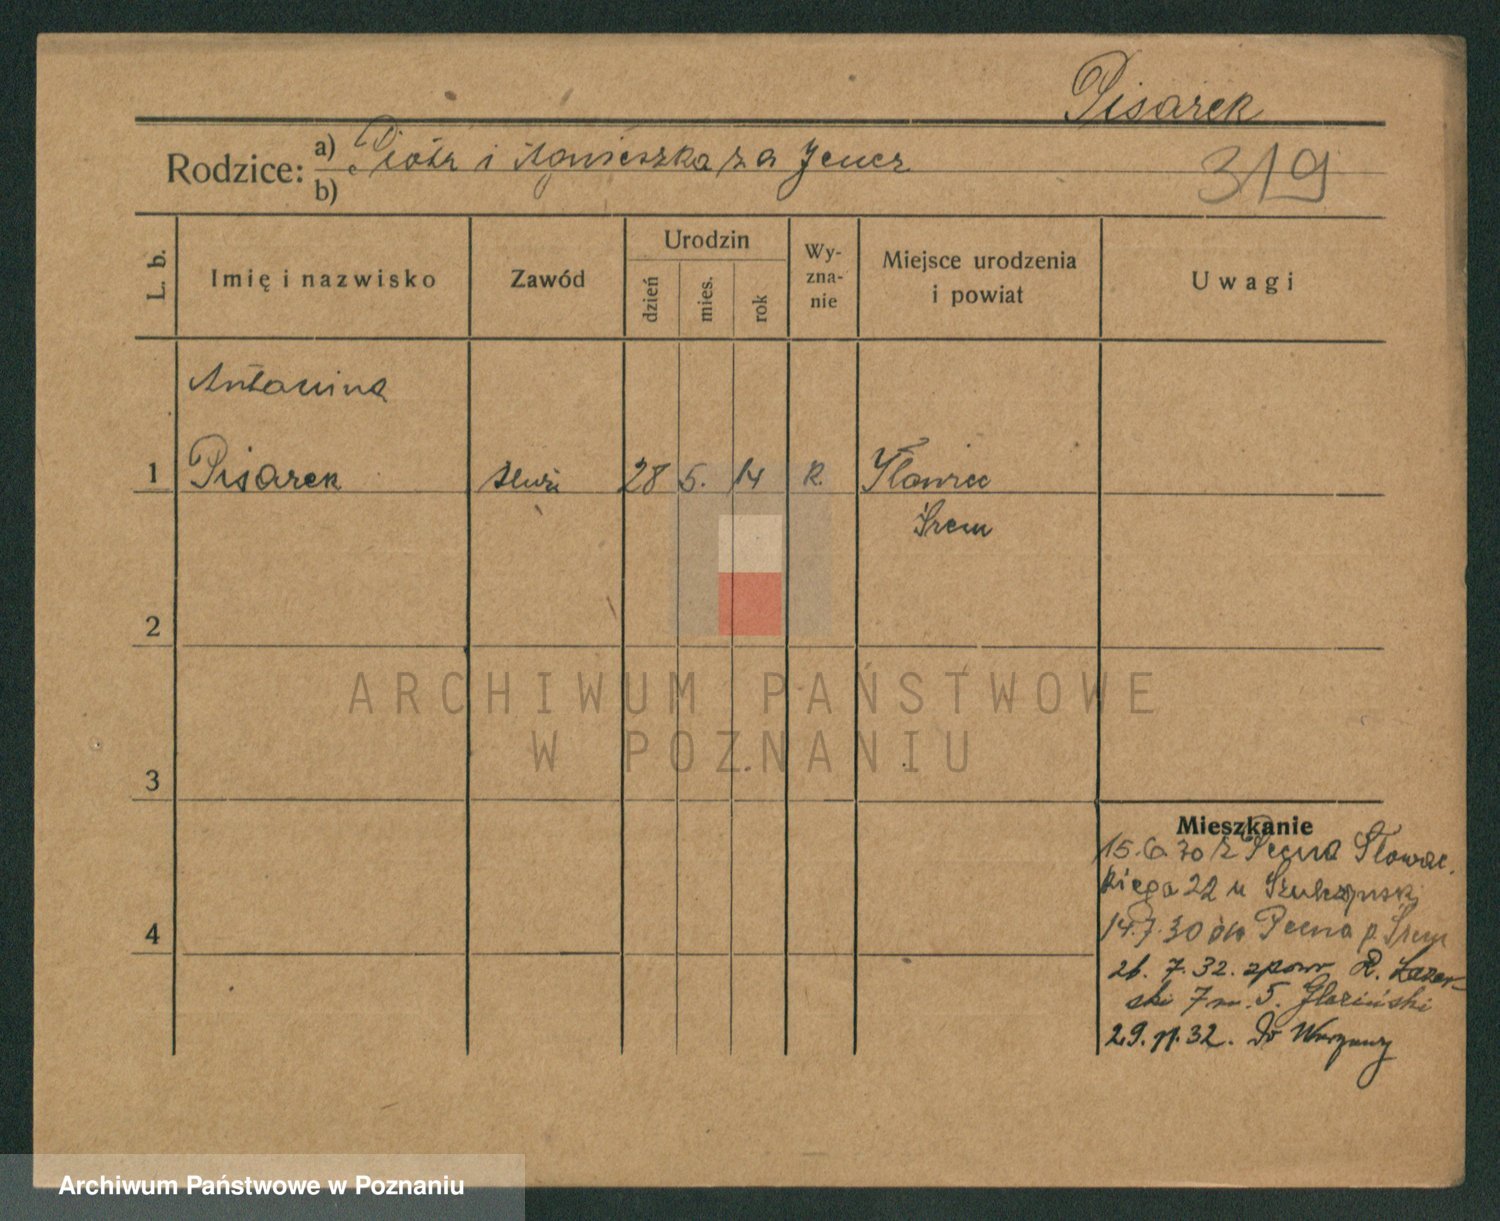 Pisarek
Rodzice: a) Piotr i Agnieszka za Jencz
b)
319
L. b.
Imię i nazwisko
Zawód
Urodzin
dzień
mies.
rok
Wy-
zna-
nie
Miejsce urodzenia
i powiat
Uwagi
Antonina
1 Pisarek służ 28 5. 14 R.
Śrem
2
3
4
ARCHIWUM PAŃSTWOWE
W POZNANIU
Mieszkanie
15.6.30 z Pecna Słowac.
kiego 22 u
14.7.30 do Pecna p Śrem
26. 7. 32. zpow R. Łazar-
ski 7 m. 5.
29. 32. Do
Archiwum Państwowe w Poznaniu